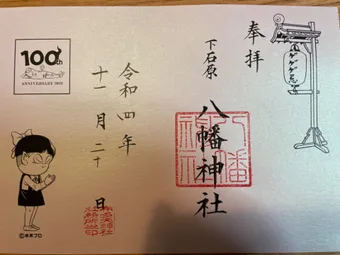 奉拝
下石原
八幡神社
令和四年
十一月二十日
100th
ANNIVERSARY 2022
ゲゲゲ忌
八幡神社
©水木プロ